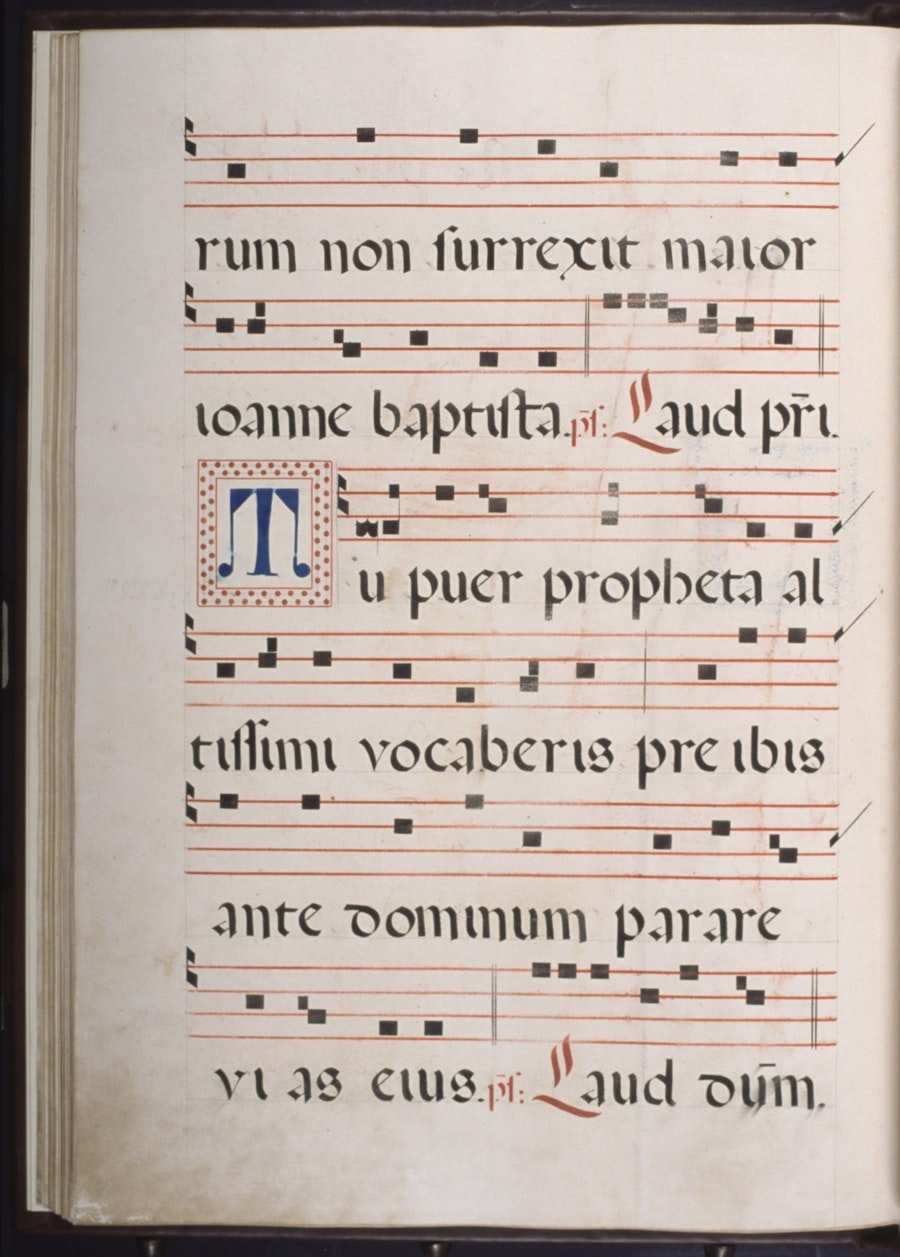 rum non ſurrexit maior
ioanne baptiſta. p̄ſ: Laud pr̄i.
Tu puer propheta al
tiſſimi vocaberis pre ibis
ante dominum parare
vi as eius. p̄ſ: Laud dn̄m.